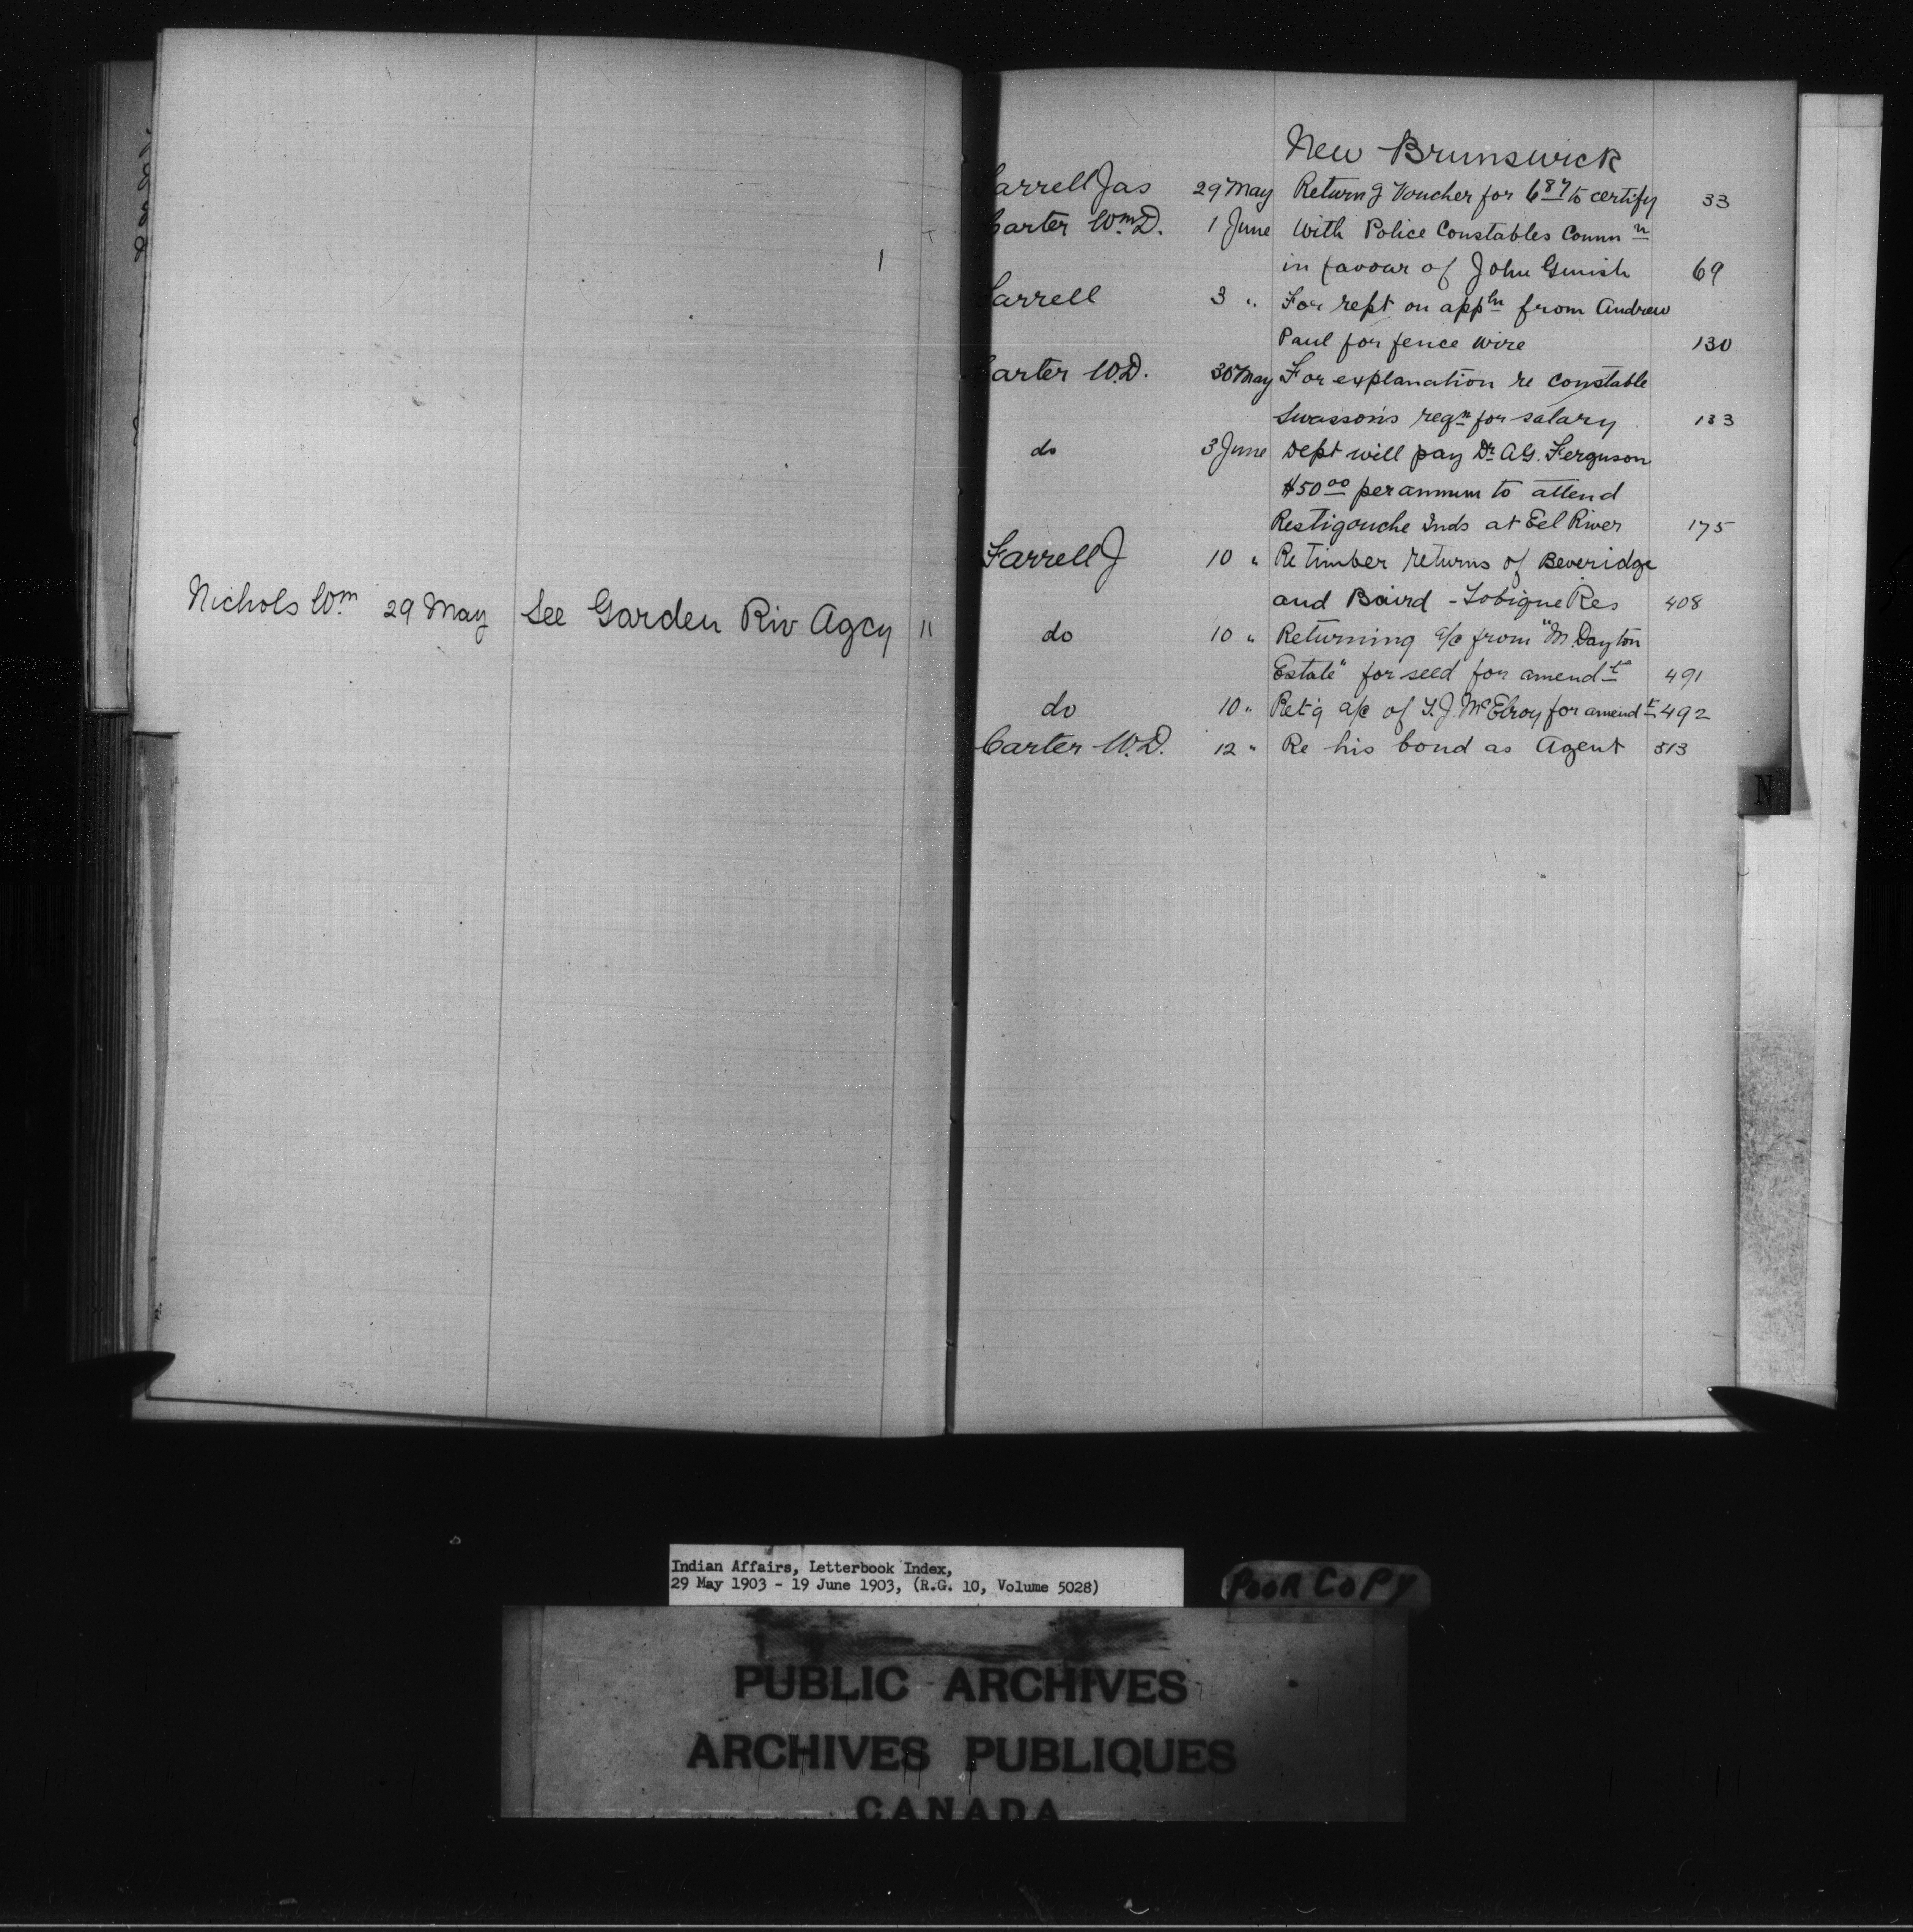 Nichols Wm 29 May See Garden Riv Agcy 11
New Brunswick
Farrell Jas 29 May Return'g Voucher for 6 87 to certify 33
Carter Wm D. 1 June With Police Constables Commn
in favour of John Ginish 69
Farrell 3 " For rept on appln from Andrew
Paul for fence wire 130
Carter W.D. 30 May For explanation re constable
Swasson's reqn for salary 133
do 3 June Dept will pay Dr A.G. Ferguson
$50 00 per annum to attend
Restigouche Inds at Eel River 175
Farrell J 10 " Re timber returns of Beveridge
and Baird - Tobique Res 408
do 10 " Returning a/c from "M. Dayton
Estate" for seed for amendt 491
do 10 " Ret'g a/c of T.J. McElroy for amendt 492
Carter W.D. 12 " Re his bond as Agent 513
N
Indian Affairs, Letterbook Index,
29 May 1903 - 19 June 1903, (R.G. 10, Volume 5028)
POOR COPY
PUBLIC ARCHIVES
ARCHIVES PUBLIQUES
CANADA